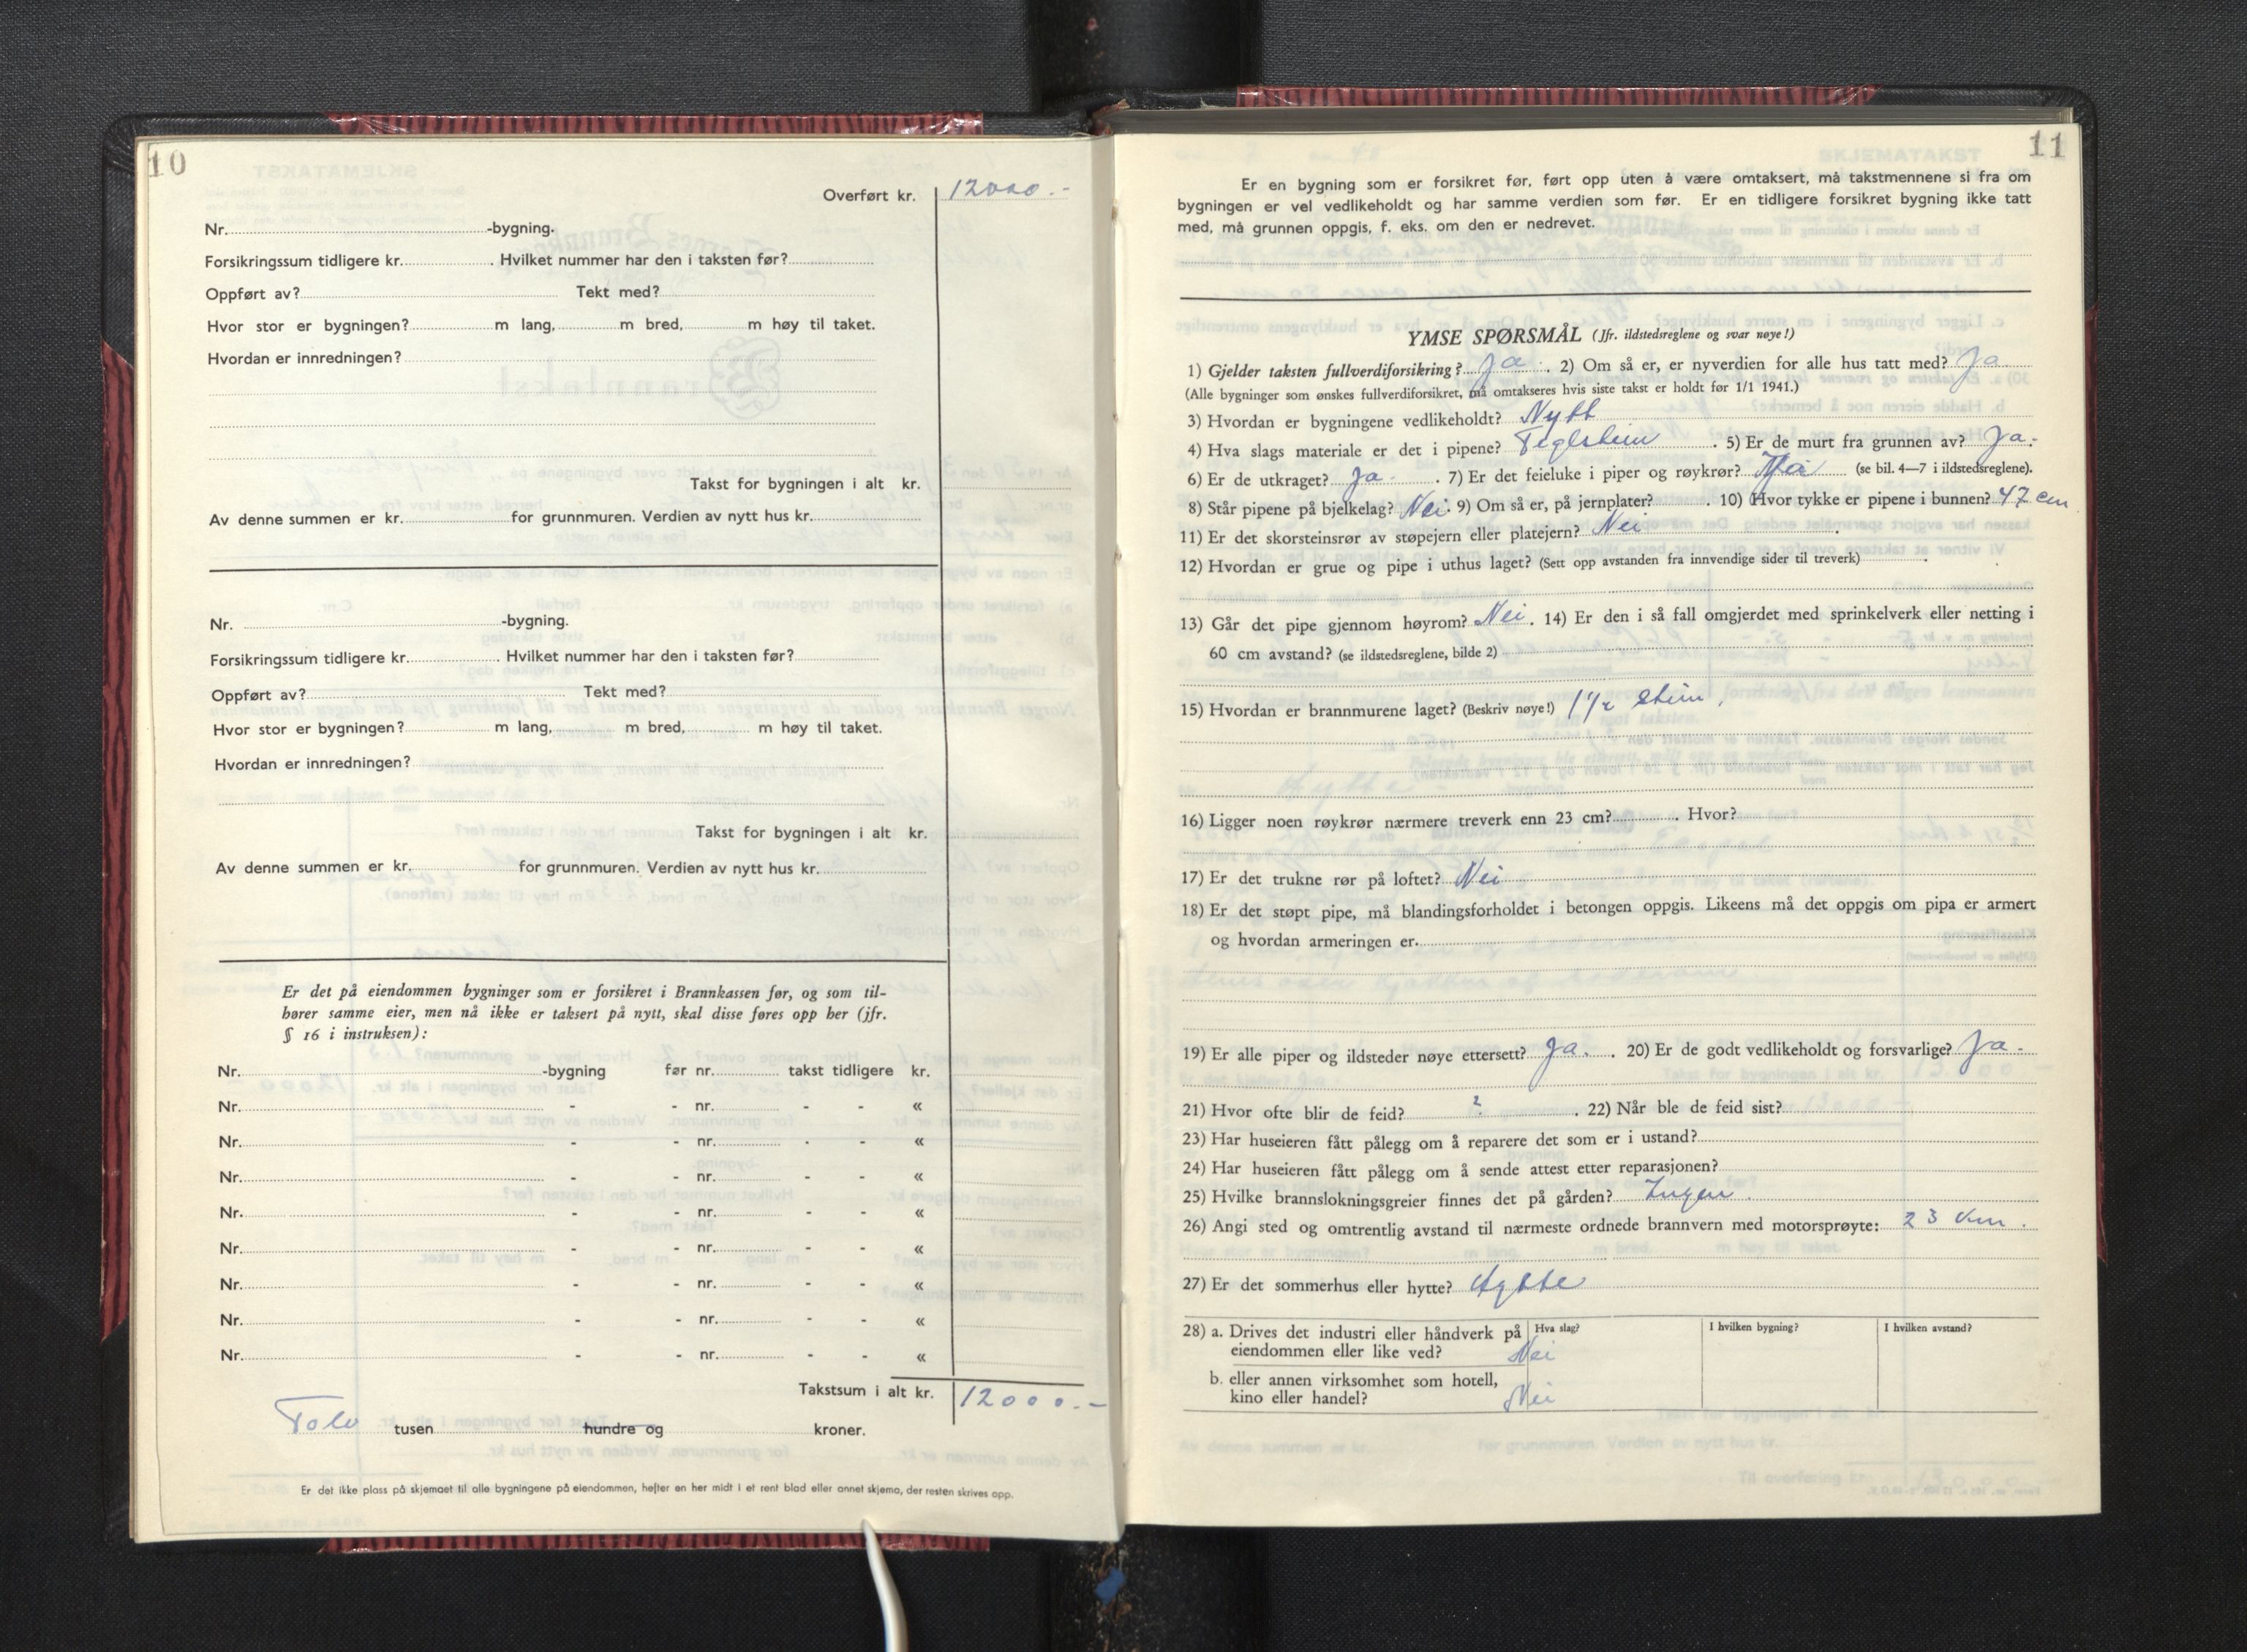 10
Overført kr. 12000.-
Nr. -bygning.
Forsikringssum tidligere kr. . Hvilket nummer har den i taksten før?
Oppført av? Tekt med?
Hvor stor er bygningen? m lang, m bred, m høy til taket.
Hvordan er innredningen?
Takst for bygningen i alt kr.
Av denne summen er kr. for grunnmuren. Verdien av nytt hus kr.
Nr. -bygning.
Forsikringssum tidligere kr. . Hvilket nummer har den i taksten før?
Oppført av? Tekt med?
Hvor stor er bygningen? m lang, m bred, m høy til taket.
Hvordan er innredningen?
Takst for bygningen i alt kr.
Av denne summen er kr. for grunnmuren. Verdien av nytt hus kr.
Er det på eiendommen bygninger som er forsikret i Brannkassen før, og som til-
hører samme eier, men nå ikke er taksert på nytt, skal disse føres opp her (jfr.
§ 16 i instruksen):
Nr. -bygning før nr. takst tidligere kr.
Nr. - - nr. - - «
Nr. - - nr. - - «
Nr. - - nr. - - «
Nr. - - nr. - - «
Nr. - - nr. - - «
Nr. - - nr. - - «
Nr. - - nr. - - «
Nr. - - nr. - - «
Takstsum i alt kr. 12000.-
Tolv tusen hundre og kroner.
Er det ikke plass på skjemaet til alle bygningene på eiendommen, hefter en her midt i et rent blad eller annet skjema, der resten skrives opp.
11
Er en bygning som er forsikret før, ført opp uten å være omtaksert, må takstmennene si fra om
bygningen er vel vedlikeholdt og har samme verdien som før. Er en tidligere forsikret bygning ikke tatt
med, må grunnen oppgis, f. eks. om den er nedrevet.
YMSE SPØRSMÅL (Jfr. ildstedsreglene og svar nøye!)
1) Gjelder taksten fullverdiforsikring? Ja. 2) Om så er, er nyverdien for alle hus tatt med? Ja
(Alle bygninger som ønskes fullverdiforsikret, må omtakseres hvis siste takst er holdt før 1/1 1941.)
3) Hvordan er bygningene vedlikeholdt? Nytt
4) Hva slags materiale er det i pipene? Teglstein . 5) Er de murt fra grunnen av? Ja.
6) Er de utkraget? Ja . 7) Er det feieluke i piper og røykrør? Ja (se bil. 4—7 i ildstedsreglene).
8) Står pipene på bjelkelag? Nei. 9) Om så er, på jernplater? . 10) Hvor tykke er pipene i bunnen? 47 cm
11) Er det skorsteinsrør av støpejern eller platejern? Nei .
12) Hvordan er grue og pipe i uthus laget? (Sett opp avstanden fra innvendige sider til treverk) .
13) Går det pipe gjennom høyrom? Nei. 14) Er den i så fall omgjerdet med sprinkelverk eller netting i
60 cm avstand? (se ildstedsreglene, bilde 2)
15) Hvordan er brannmurene laget? (Beskriv nøye!) 1 1/2 stein.
16) Ligger noen røykrør nærmere treverk enn 23 cm? . Hvor?
17) Er det trukne rør på loftet? Nei
18) Er det støpt pipe, må blandingsforholdet i betongen oppgis. Likeens må det oppgis om pipa er armert
og hvordan armeringen er.
19) Er alle piper og ildsteder nøye ettersett? Ja. . 20) Er de godt vedlikeholdt og forsvarlige? Ja.
21) Hvor ofte blir de feid? ? . 22) Når ble de feid sist?
23) Har huseieren fått pålegg om å reparere det som er i ustand?
24) Har huseieren fått pålegg om å sende attest etter reparasjonen?
25) Hvilke brannslokningsgreier finnes det på gården? Ingen .
26) Angi sted og omtrentlig avstand til nærmeste ordnede brannvern med motorsprøyte: 23 km.
27) Er det sommerhus eller hytte? Hytte
28) a. Drives det industri eller håndverk på Hva slag? I hvilken bygning? I hvilken avstand?
eiendommen eller like ved? Nei
b. eller annen virksomhet som hotell,
kino eller handel? Nei